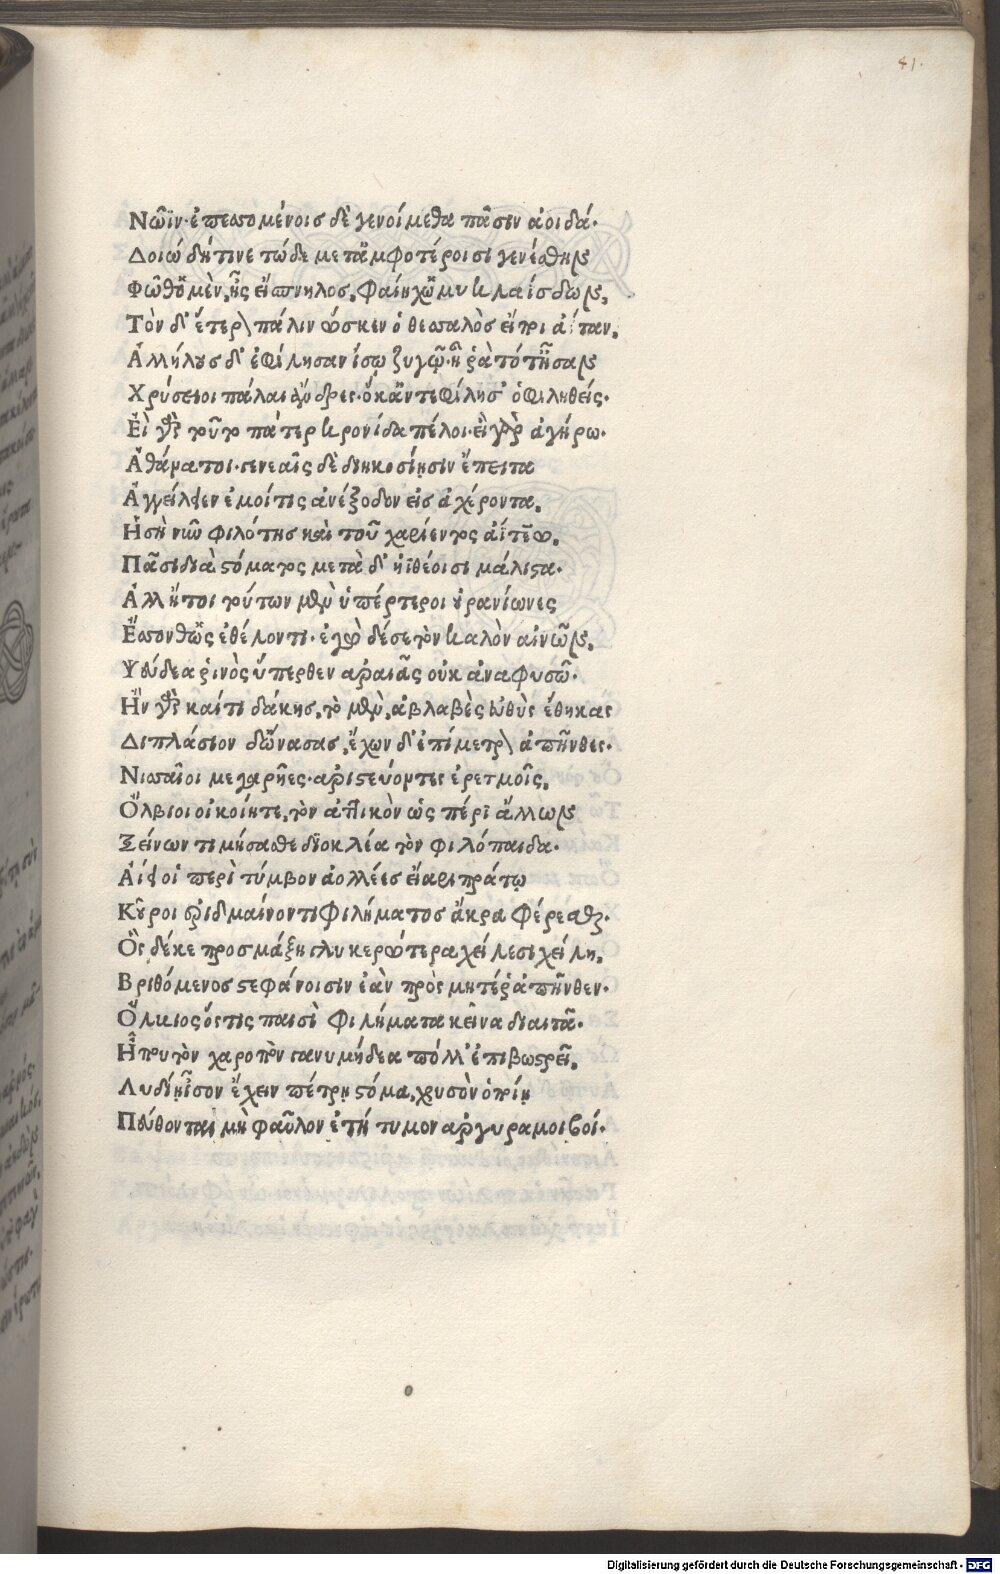 41.
Νῶϊν· ἐπεσσομένοις δὲ γενοίμεθα πᾶσιν ἀοιδά·
Δοιώ δή τινε τώδε μετ' ἀμφοτέροισι γενέσθην
Φῶθ' ὃ μὲν, ἧς εἴσπνηλος, φαίη χὤμυκλαΐσδων,
Τὸν δ' ἕτερον πάλιν ὥσκεν ὁ θεσσαλὸς εἴποι ἀΐταν,
Ἀλλήλους δ' ἐφίλησαν ἴσῳ ζυγῷ· ἦ ῥὰ τότ' ἦσαν
Χρύσειοι πάλαι ἄνδρες· ὅκ' ἀντεφίλησ' ὁ φιληθείς·
Εἰ γὰρ τοῦτο πάτερ κρονίδα πέλοι· εἰ γὰρ ἀγήρω·
Ἀθάνατοι· γενεαῖς δὲ διηκοσίῃσιν ἔπειτα
Ἀγγείλειεν ἐμοί τις ἀνέξοδον εἰς ἀχέροντα,
Ἡ σὴ νῦν φιλότης καὶ τοῦ χαρίεντος ἀΐτεω,
Πᾶσι διὰ στόματος μετὰ δ' ἠϊθέοισι μάλιστα·
Ἀλλ' ἤτοι τούτων μὲν ὑπέρτεροι οὐρανίωνες
Ἔσσονθ' ὥς ἐθέλοντι· ἐγὼ δέ σε τὸν καλὸν αἰνῶν,
Ψεύδεα ῥινὸς ὕπερθεν ἀραιᾶς οὐκ ἀναφυσῶ·
Ἢν γὰρ καί τι δάκῃς, τὸ μὲν, ἀβλαβὲς εὐθὺς ἔθηκας
Διπλάσιον δ' ὤνασας, ἔχων δ' ἐπίμετρον ἀπῆνθες·
Νισσαῖοι μεγαρῆες· ἀριστεύοντες ἐρετμοῖς,
Ὄλβιοι οἰκοίητε, τὸν ἀττικὸν ὡς πέρι ἄλλων
Ξείνων τιμήσασθε διοκλέα τὸν φιλόπαιδα·
Αἰεί οἱ περὶ τύμβον ἀολλέες εἴαρι πράτῳ
Κῦροι ἐριδμαίνοντι φιλήματος ἄκρα φέρεσθαι·
Ὃς δέ κε προσμάξῃ γλυκερώτερα χείλεσι χείλη,
Βριθόμενος στεφάνοισιν ἑὰν πρὸς μητέρ' ἀπῆνθεν·
Ὄλβιος ὅστις παισὶ φιλήματα κεῖνα διαιτᾶ·
Ἦ που τὸν χαροπὸν γανυμήδεα πόλλ' ἐπιβωστρεῖ,
Λυδίῃ ἶσον ἔχειν πέτρῃ στόμα, χρυσὸν ὁποίῃ
Πεύθονται μὴ φαῦλον ἐτήτυμον ἀργυραμοιβοί·
Digitalisierung gefördert durch die Deutsche Forschungsgemeinschaft - DFG